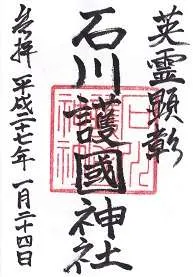 英霊顕彰
石川護國神社
参拝 平成二十七年 一月二十四日